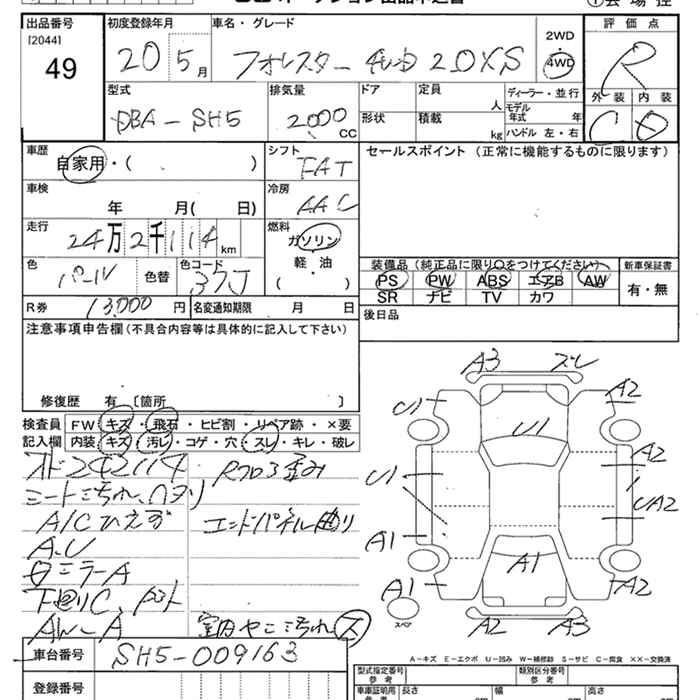 出品番号
[2044]
49
初度登録年月
20 5 月
車名・グレード
フォレスター 4WD 2.0XS
2WD
4WD
評価点
R
型式
DBA-SH5
排気量
2000 CC
ドア
形状
定員
人
積載
kg
ディーラー・並行
モデル年式 年
ハンドル 左・右
外装 内装
C
車歴
自家用・( )
シフト
FAT
セールスポイント (正常に機能するものに限ります)
車検
年 月( 日)
冷房
AAC
走行
24万2千114km
燃料
ガソリン
軽・油
( )
色
パール
色替
色コード
37J
装備品 (純正品に限り○をつけてください)
新車保証書
PS PW ABS エアB AW
有・無
SR ナビ TV カワ
R券
13,000 円
名変通知期限 月 日
後日品
注意事項申告欄 (不具合内容等は具体的に記入して下さい)
修復歴 有 〔箇所
検査員
記入欄
FW キズ・飛石・ヒビ割・リペア跡・×要
内装 キズ・汚レ・コゲ・穴・スレ・キレ・破レ
オド242114
シート汚れ、ハヌリ
A/Cひえず
A.U
ミラーA
下廻りC、
AW-A
Rフロア歪み
エンドパネル曲り
室内ヤニ汚れ、ス
A3 スレ
U1 A2
U1
U1 A2
UA2
A1 A1
A1 A2
スペア
A2 A3
A-キズ E-エクボ U-凹み W-補修跡 S-サビ C-腐食 XX-交換済
車台番号
SH5-009163
登録番号
型式指定番号
参考
類別区分番号
参考
車車証明用
長さ
幅
高さ